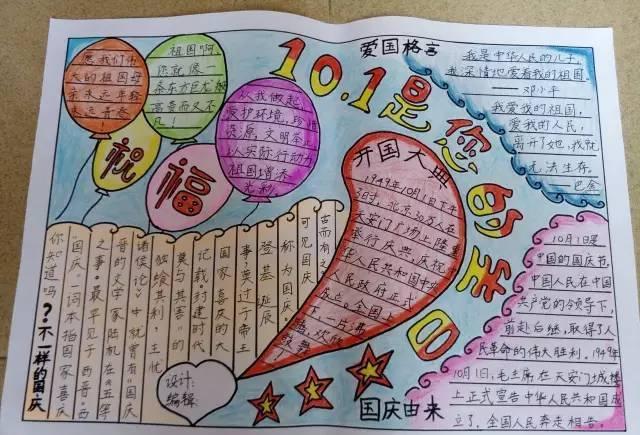 爱国格言
10.1是您的生日
愿我们伟
大的祖国母
亲永远年轻
永远青春
!
祖国啊,
你就像一
条东方巨龙
高贵而又不
凡!
从我做起
爱护环境,珍惜
资源,文明茶
以实际行动为
祖国增添
光彩。
祝
福
我是中华人民的儿子,
我深情地爱着我的祖国
——邓小平
我爱我的祖国,
爱我的人民,
离开了她,我就
无法生存。
——巴金
开国大典
1949年10月1日下午
3时,北京30万人在
天安门广场上隆重
举行庆典,庆祝中
华人民共和国中央
人民政府正式
成立。全国上
下一片沸
腾,欢欣
鼓舞!
10月1日是
中国的国庆节,
中国人民在中国
共产党的领导下,
前赴后继,取得了人
民革命的伟大胜利。1949年
10月1日,毛主席在天安门城楼
上正式宣告中华人民共和国成
立了,全国人民奔走相告。
国庆由来
?不一样的国庆
你知道吗
“国庆”一词本指国家喜庆
之事。最早见于西晋。西
晋的文学家陆机在《五等
诸侯论》中就曾有“国庆
独飨其利,主忧
莫与其害”的
记载封建时代
国家喜庆的大
事莫过于帝王
登基诞辰
称为国庆
可见国庆
古而有之
设计:
编辑: